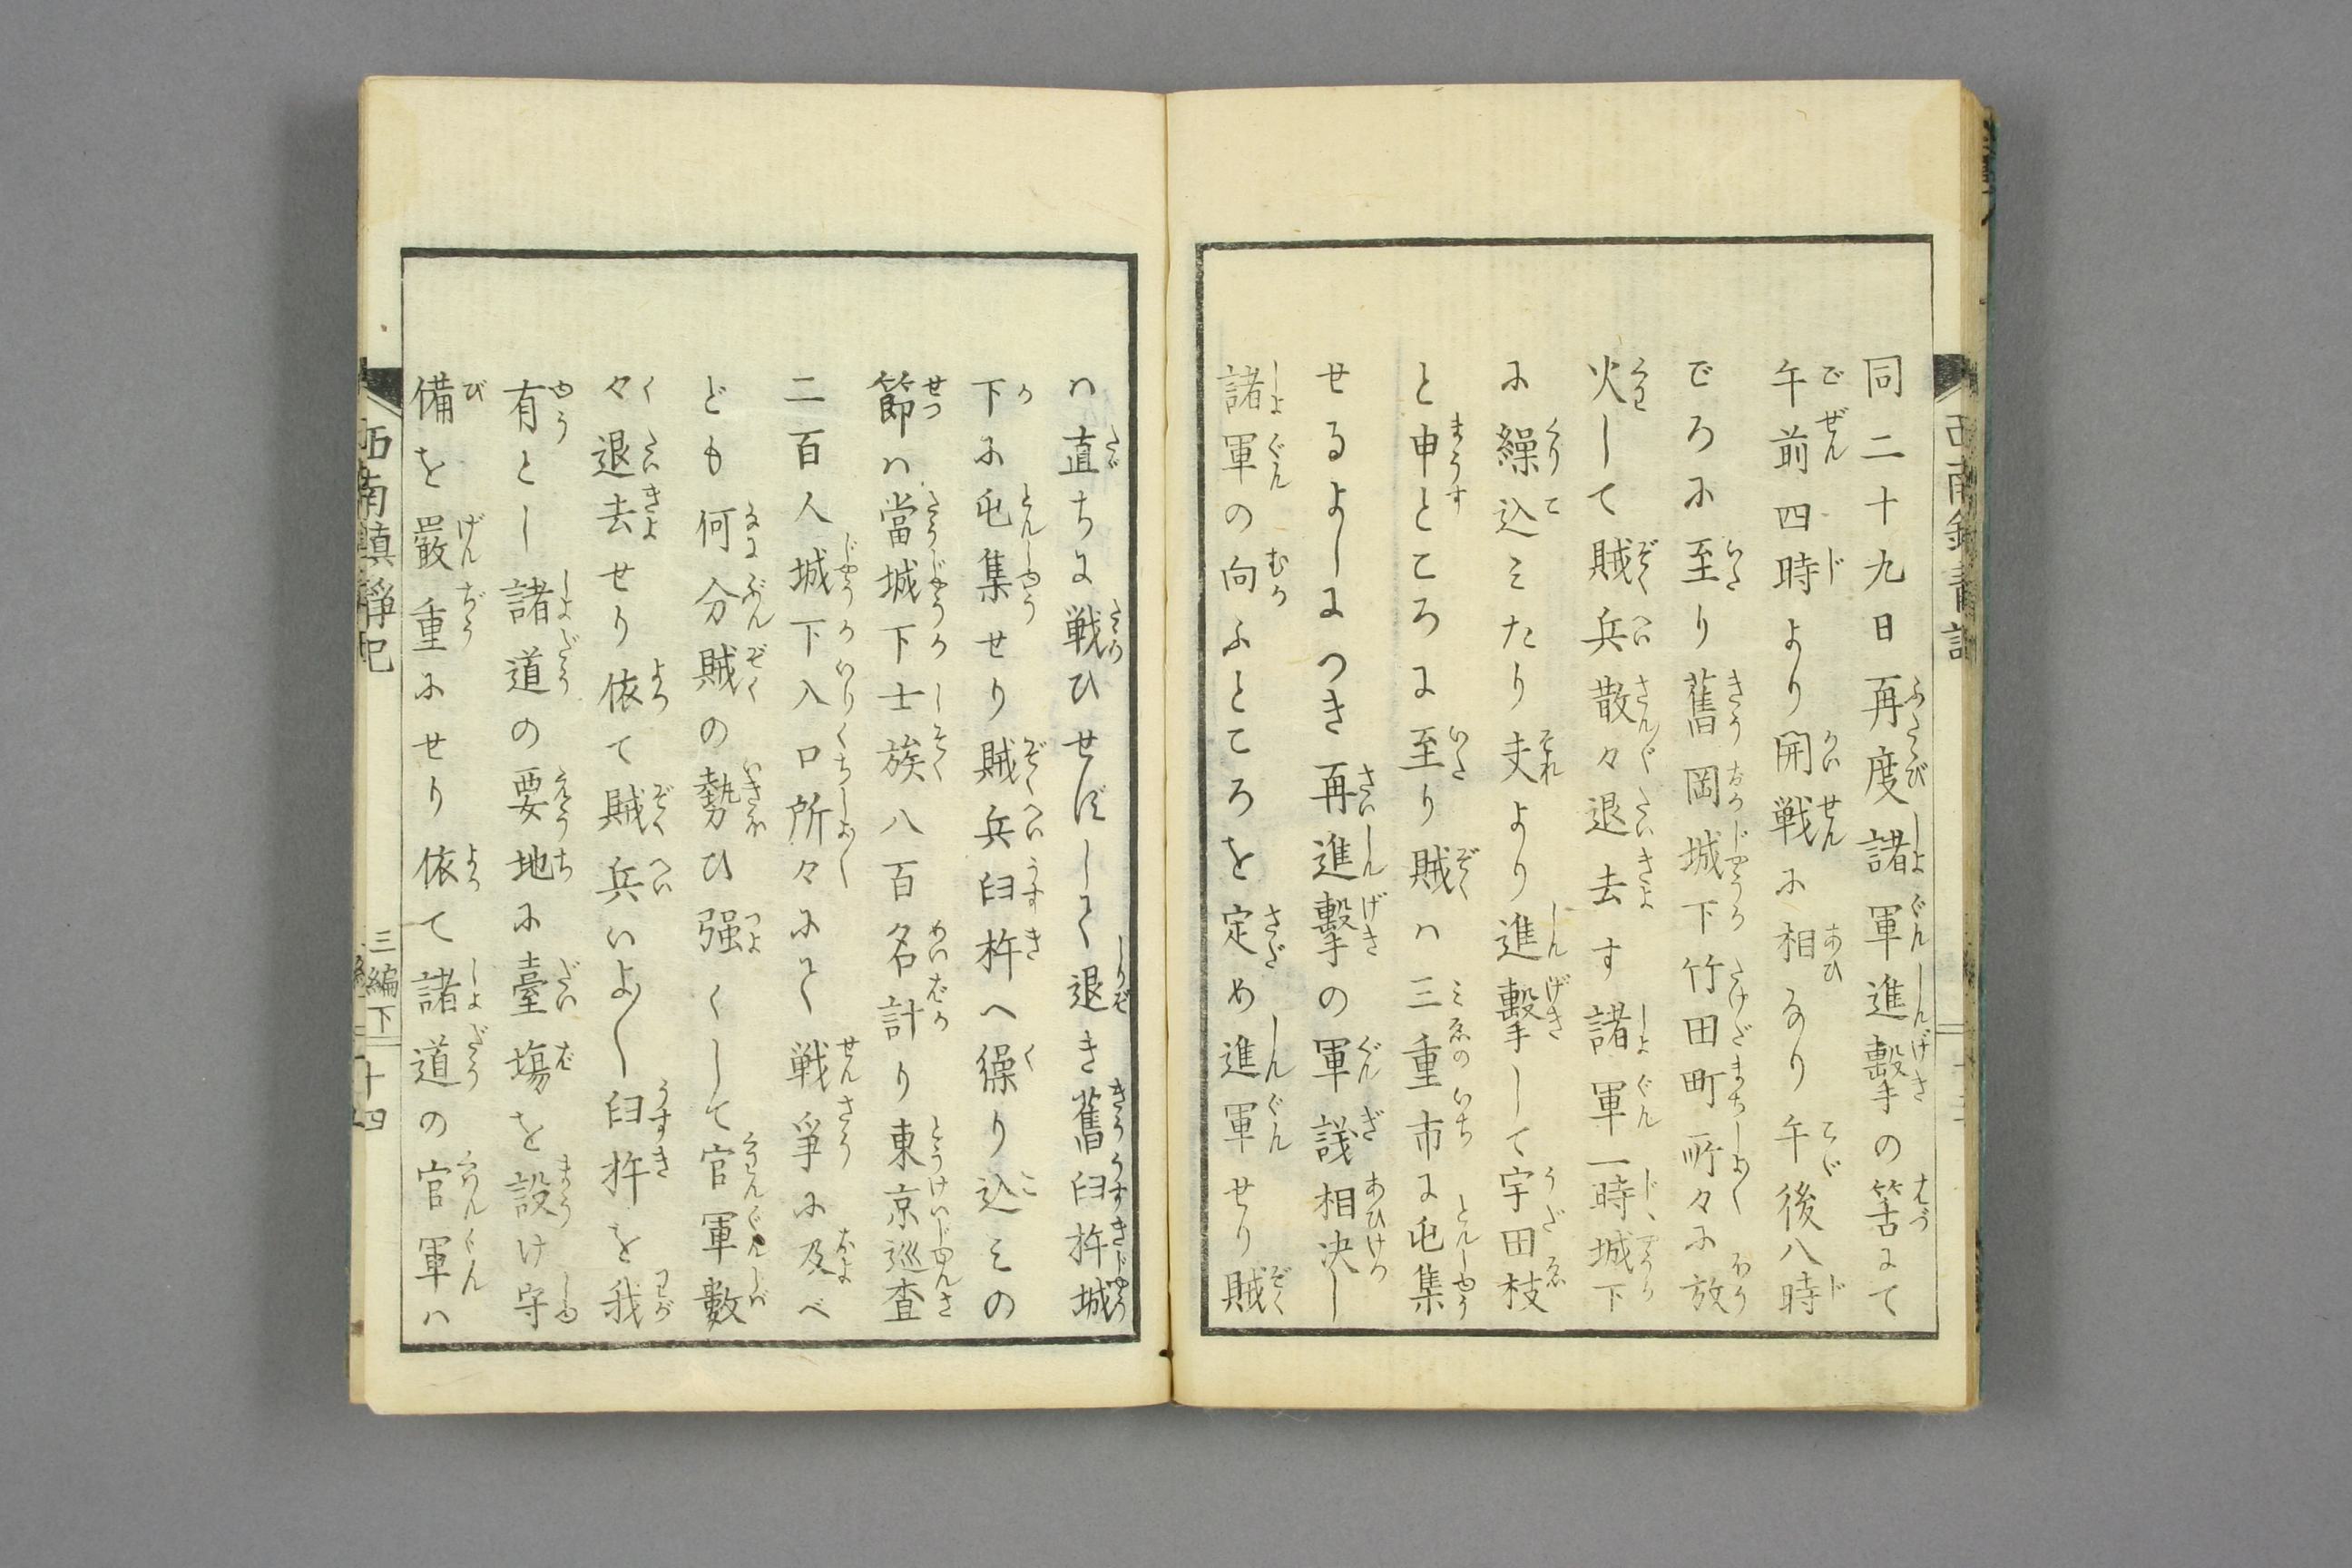 同二十九日再度諸軍進擊の筈にて
午前四時より開戦に相なり午後八時
ごろに至り舊岡城下竹田町所々に放
火して賊兵散々退去す諸軍一時城下
に繰込ミたり夫より進擊して宇田枝
と申ところに至り賊ハ三重市に屯集
せるよしにつき再進擊の軍議相决し
諸軍の向ふところを定め進軍せり賊
ハ直ちに戦ひせずして退き舊臼杵城
下に屯集せり賊兵臼杵へ繰り込ミの
節ハ當城下士族八百名計り東京巡査
二百人城下入口所々にて戦爭に及べ
ども何分賊の勢ひ强くして官軍數
々退去せり依て賊兵いよ〳〵臼杵を我
有とし諸道の要地に臺塲を設け守
備を嚴重にせり依て諸道の官軍ハ
西南鎮静記
三編下
十四